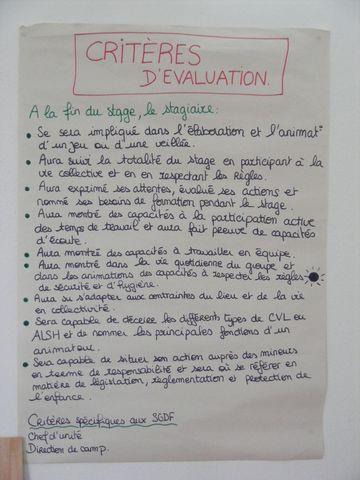 CRITÈRES
D'EVALUATION.
A la fin du stage, le stagiaire:
Se sera impliqué dans l'élaboration et l'animat°
d'un jeu ou d'une veillée.
Aura suivi la totalité du stage en participant à la
vie collective et en en respectant les Règles.
Aura exprimé ses attentes, évalué ses actions et
nommé ses besoins de formation pendant le stage.
Aura montré des capacités à la participation active
des temps de travail et aura fait preuve de capacités
d'écoute.
Aura montré des capacités à travailler en équipe.
Aura montré dans la vie quotidienne du groupe et
dans les animations des capacités à respecter les règles
de sécurité et d'hygiène.
Aura su s'adapter aux contraintes du lieu et de la vie
en collectivité.
Sera capable de décrire les différents types de CVL ou
ALSH et de nommer les principales fonctions d'un
animateur.
Sera capable de situer son action auprès des mineurs
en terme de responsabilité et sera où se référer en
matière de législation, réglementation et protection de
l'enfance.
Critères spécifiques aux SGDF
Chef d'unité
Direction de camp.